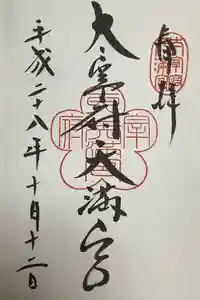 奉拝
太宰府天満宮
平成二十八年十月十二日